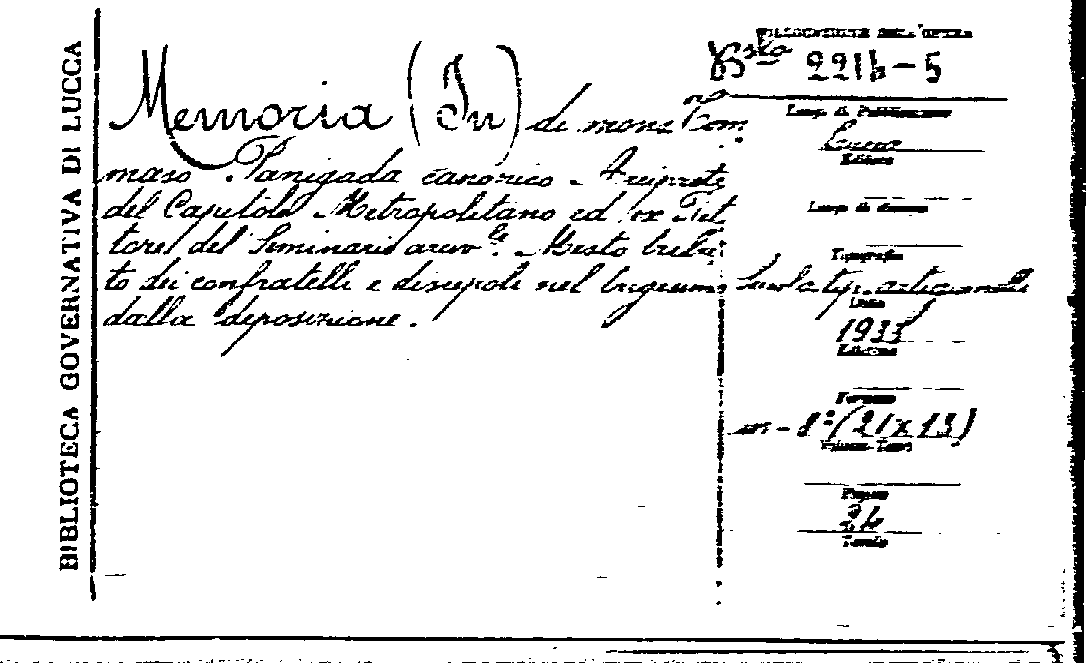 BIBLIOTECA GOVERNATIVA DI LUCCA
Memoria (In) di mons. Tom
maso Panigada canonico Arciprete
del Capitolo Metropolitano ed ex Ret
tore del Seminario arciv.le. Mesto tribu
to dei confratelli e discepoli nel trigesimo
dalla deposizione.
COLLOCAZIONE DELL'OPERA
Bsta 221b-5
Luogo di Pubblicazione
Editore
Luogo di stampa
Tipografia
Scuola tip. artigianelli
Data
1933
Edizione
Formato
in-8° (21x13)
Volume-Tomo
Pagine
26
Tavole